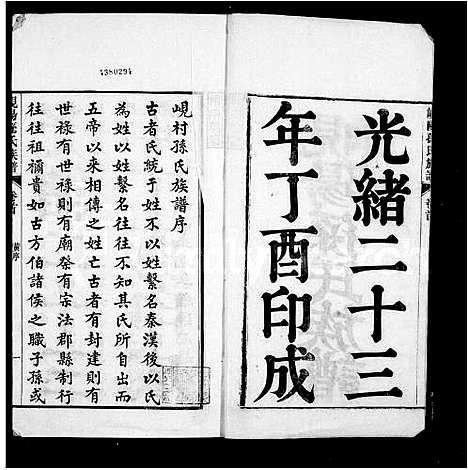 光緒二十三
年丁酉印成
峴村孫氏族譜序
古者氏統于姓不以姓繫名秦漢後以氏
為姓以姓繫名往往不知其氏所自出而
五帝以來相傳之姓亡古者有封建則有
世祿有世祿則有廟祭有宗法郡縣制行
往往祖禰貴如古方伯諸侯之職子孫或
序
一
4380294